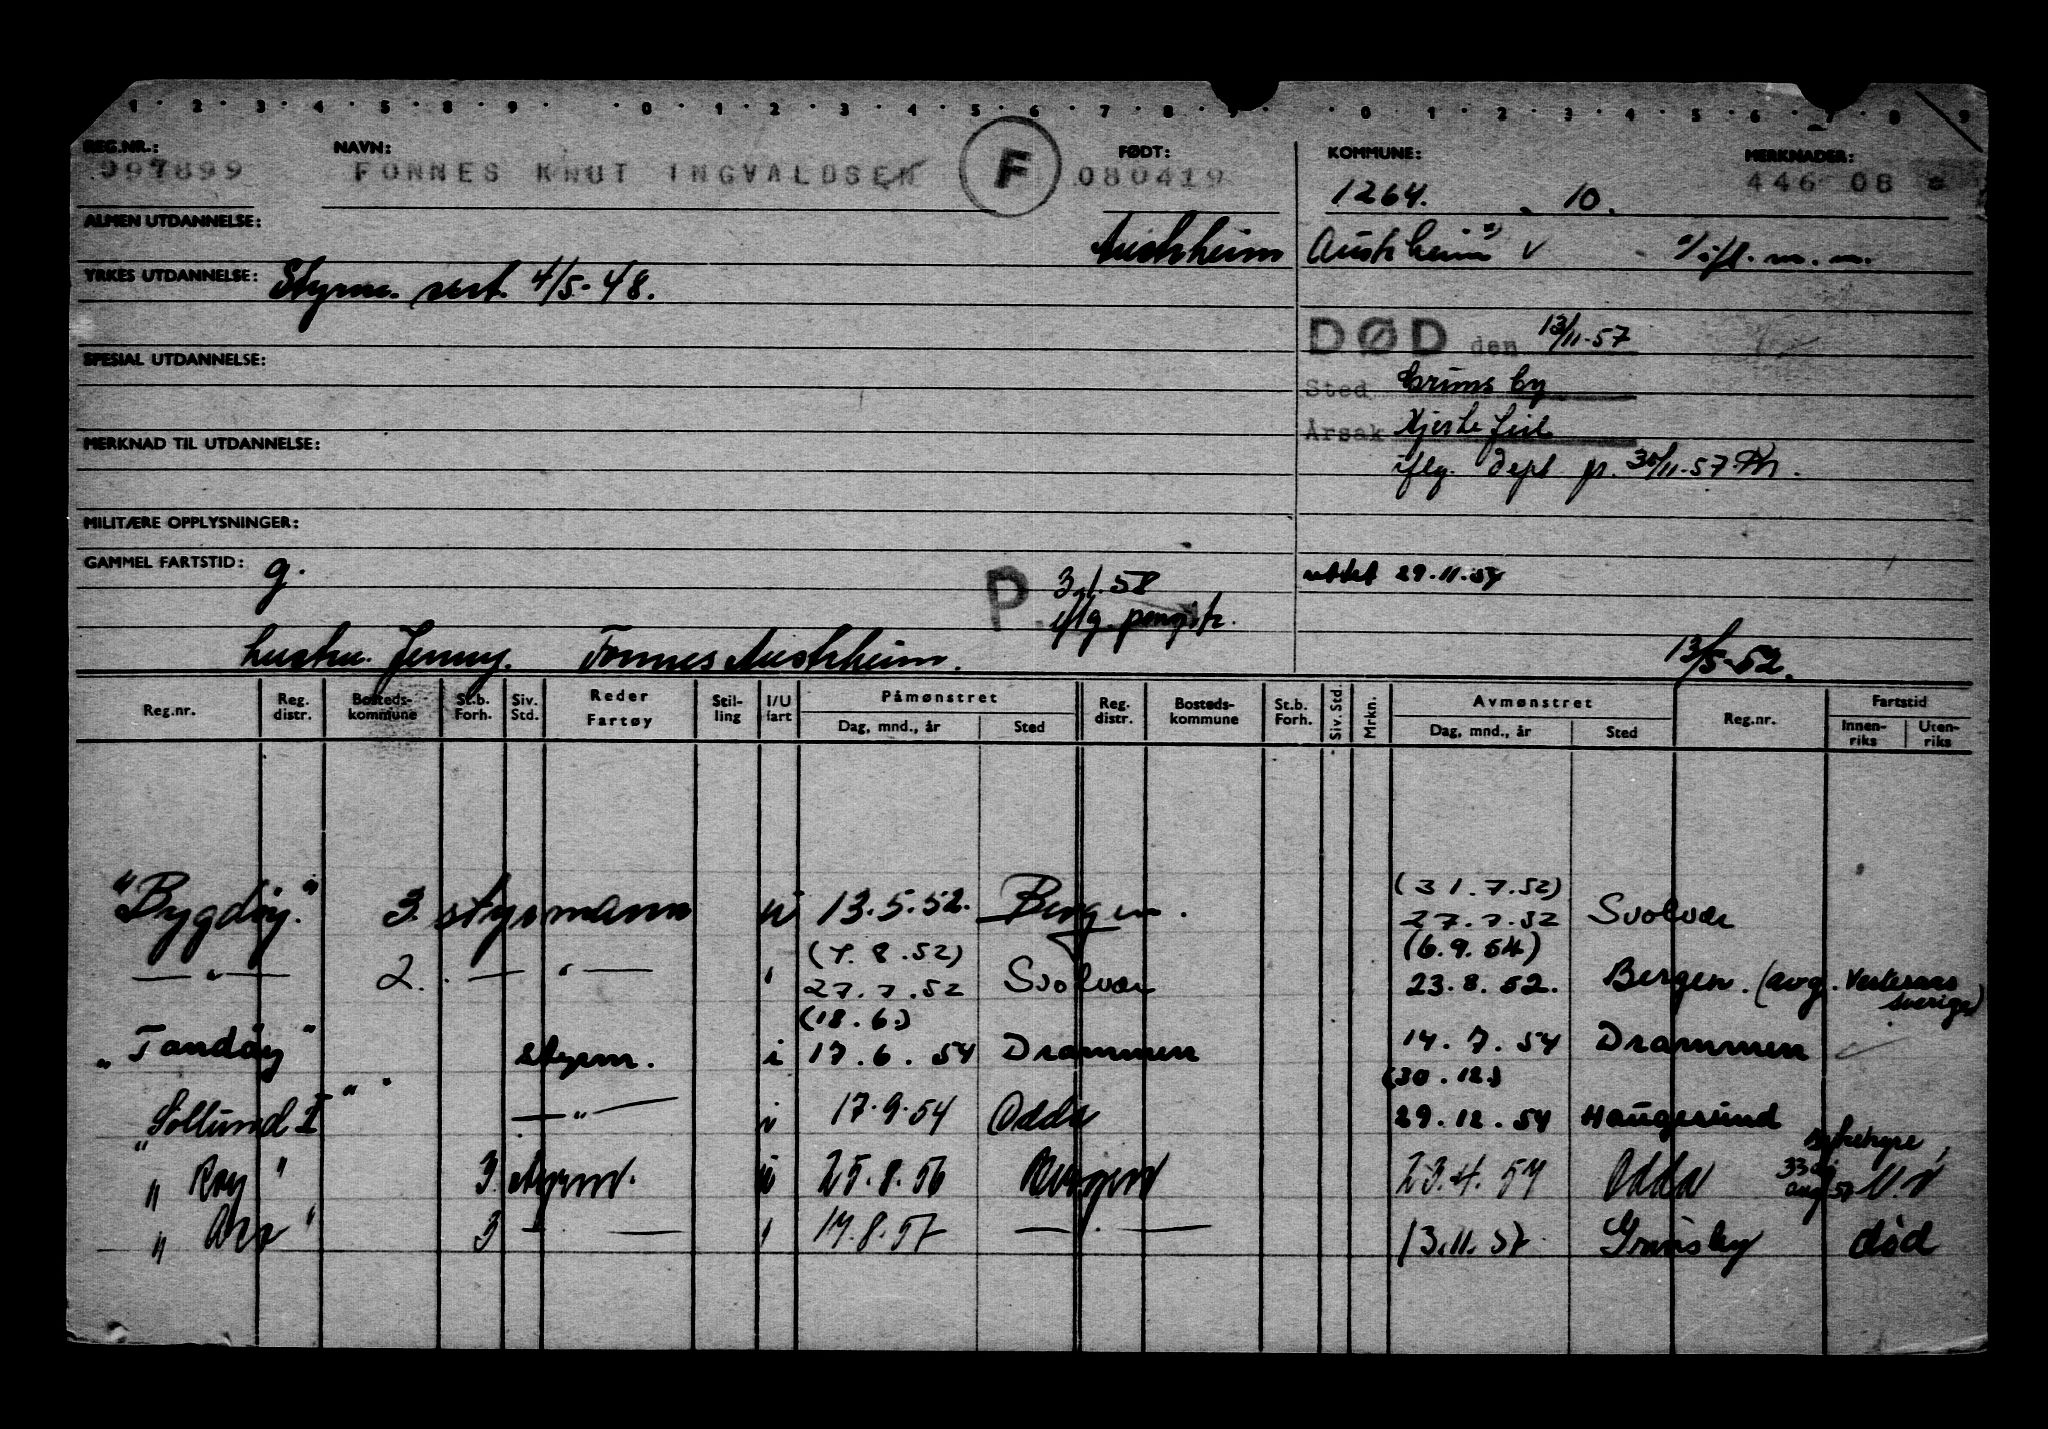 1 · 2 · 3 · 4 · 5 · 8 · 9 · · 0 · 1 · 2 · 3 · 4 · 5 · 6 · 7 · 8 · 9 · · 0 · 1 · 2 · 3 · 4 · 5 · 6 · 7 · 8 · 9
REG.NR.: NAVN: FØDT: KOMMUNE: MERKNADER:
997899 FONNES KNUT INGVALDSEN F 080419 1264. 10. 446 08
ALMEN UTDANNELSE: Austrheim Austrheim x) v x) ifl. m. m.
YRKES UTDANNELSE: Styrm. sert. 4/5-48.
DØD den 13/11-57
SPESIAL UTDANNELSE:
Sted Grimsby
MERKNAD TIL UTDANNELSE: Årsak Hjertefeil
iflg. dept pr. 30/11-57.
MILITÆRE OPPLYSNINGER:
GAMMEL FARTSTID: g. P 3.1.58 rettet 29.11.54
iflg. pensj.tr.
hustru. Jenny. Fonnes Austrheim. 13/5-52.
Reg.nr. Reg. distr. Bosteds-kommune St.b. Forh. Siv. Std. Reder Fartøy Stil-ling I/U fart Påmønstret Dag, mnd., år Sted Reg. distr. Bosteds-kommune St.b. Forh. Siv. Std. Mrkn. Avmønstret Dag, mnd., år Sted Reg.nr. Fartstid Innen-riks Uten-riks
(31.7.52)
"Bygdøy." 3. styrmann u 13.5.52. Bergen. 27.7.52 Svolvær
(7.8.52) (6.9.54)
— " — 2. — " — ' 27.7.52 Svolvær 23.8.52. Bergen. (avg. Vesteraas Sverige)
(18.6.)
"Tandøy" styrm. i 17.6.54 Drammen 14.7.54 Drammen
(30.12.)
"Sollund I" — " — i 17.9.54 Odda 29.12.54 Haugesund
sykehyre
" Roy " 3 styrm. u 25.8.56 Bergen 23.4.57 Odda
" Ara " 3 — — ' 14.8.57 — " — 13.11.57 Grimsby død